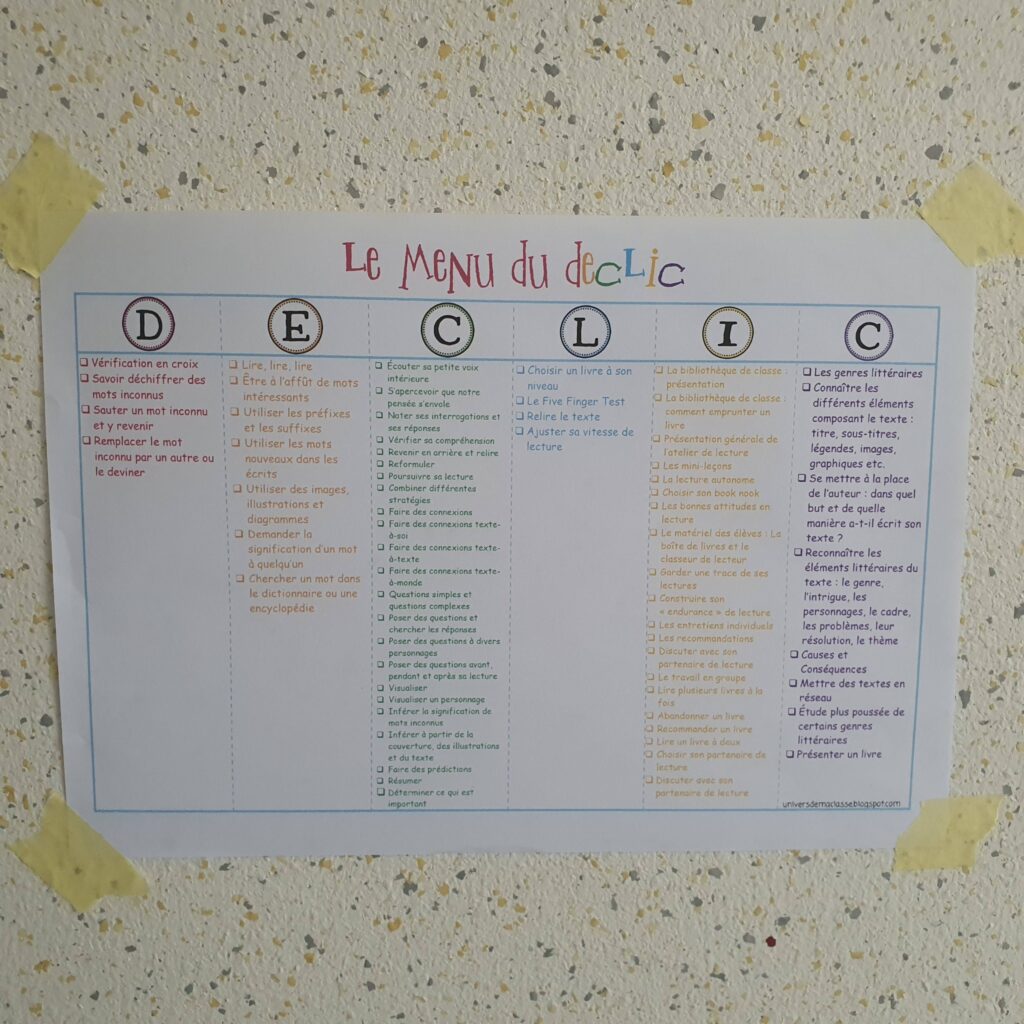 Le Menu du declic
D
Vérification en croix
Savoir déchiffrer des
mots inconnus
Sauter un mot inconnu
et y revenir
Remplacer le mot
inconnu par un autre ou
le deviner
E
Lire, lire, lire
Être à l'affût de mots
intéressants
Utiliser les préfixes
et les suffixes
Utiliser les mots
nouveaux dans les
écrits
Utiliser des images,
illustrations et
diagrammes
Demander la
signification d'un mot
à quelqu'un
Chercher un mot dans
le dictionnaire ou une
encyclopédie
C
Écouter sa petite voix
intérieure
S'apercevoir que notre
pensée s'envole
Noter ses interrogations et
ses réponses
Vérifier sa compréhension
Revenir en arrière et relire
Reformuler
Poursuivre sa lecture
Combiner différentes
stratégies
Faire des connexions
Faire des connexions texte-
à-soi
Faire des connexions texte-
à-texte
Faire des connexions texte-
à-monde
Questions simples et
questions complexes
Poser des questions et
chercher les réponses
Poser des questions à divers
personnages
Poser des questions avant,
pendant et après sa lecture
Visualiser
Visualiser un personnage
Inférer la signification de
mots inconnus
Inférer à partir de la
couverture, des illustrations
et du texte
Faire des prédictions
Résumer
Déterminer ce qui est
important
L
Choisir un livre à son
niveau
Le Five Finger Test
Relire le texte
Ajuster sa vitesse de
lecture
I
La bibliothèque de classe :
présentation
La bibliothèque de classe :
comment emprunter un
livre
Présentation générale de
l'atelier de lecture
Les mini-leçons
La lecture autonome
Choisir son book nook
Les bonnes attitudes en
lecture
Le matériel des élèves : La
boîte de livres et le
classeur de lecteur
Garder une trace de ses
lectures
Construire son
« endurance » de lecture
Les entretiens individuels
Les recommandations
Discuter avec son
partenaire de lecture
Le travail en groupe
Lire plusieurs livres à la
fois
Abandonner un livre
Recommander un livre
Lire un livre à deux
Choisir son partenaire de
lecture
Discuter avec son
partenaire de lecture
C
Les genres littéraires
Connaître les
différents éléments
composant le texte :
titre, sous-titres,
légendes, images,
graphiques etc.
Se mettre à la place
de l'auteur : dans quel
but et de quelle
manière a-t-il écrit son
texte ?
Reconnaître les
éléments littéraires du
texte : le genre,
l'intrigue, les
personnages, le cadre,
les problèmes, leur
résolution, le thème
Causes et
Conséquences
Mettre des textes en
réseau
Étude plus poussée de
certains genres
littéraires
Présenter un livre
universdemaclasse.blogspot.com